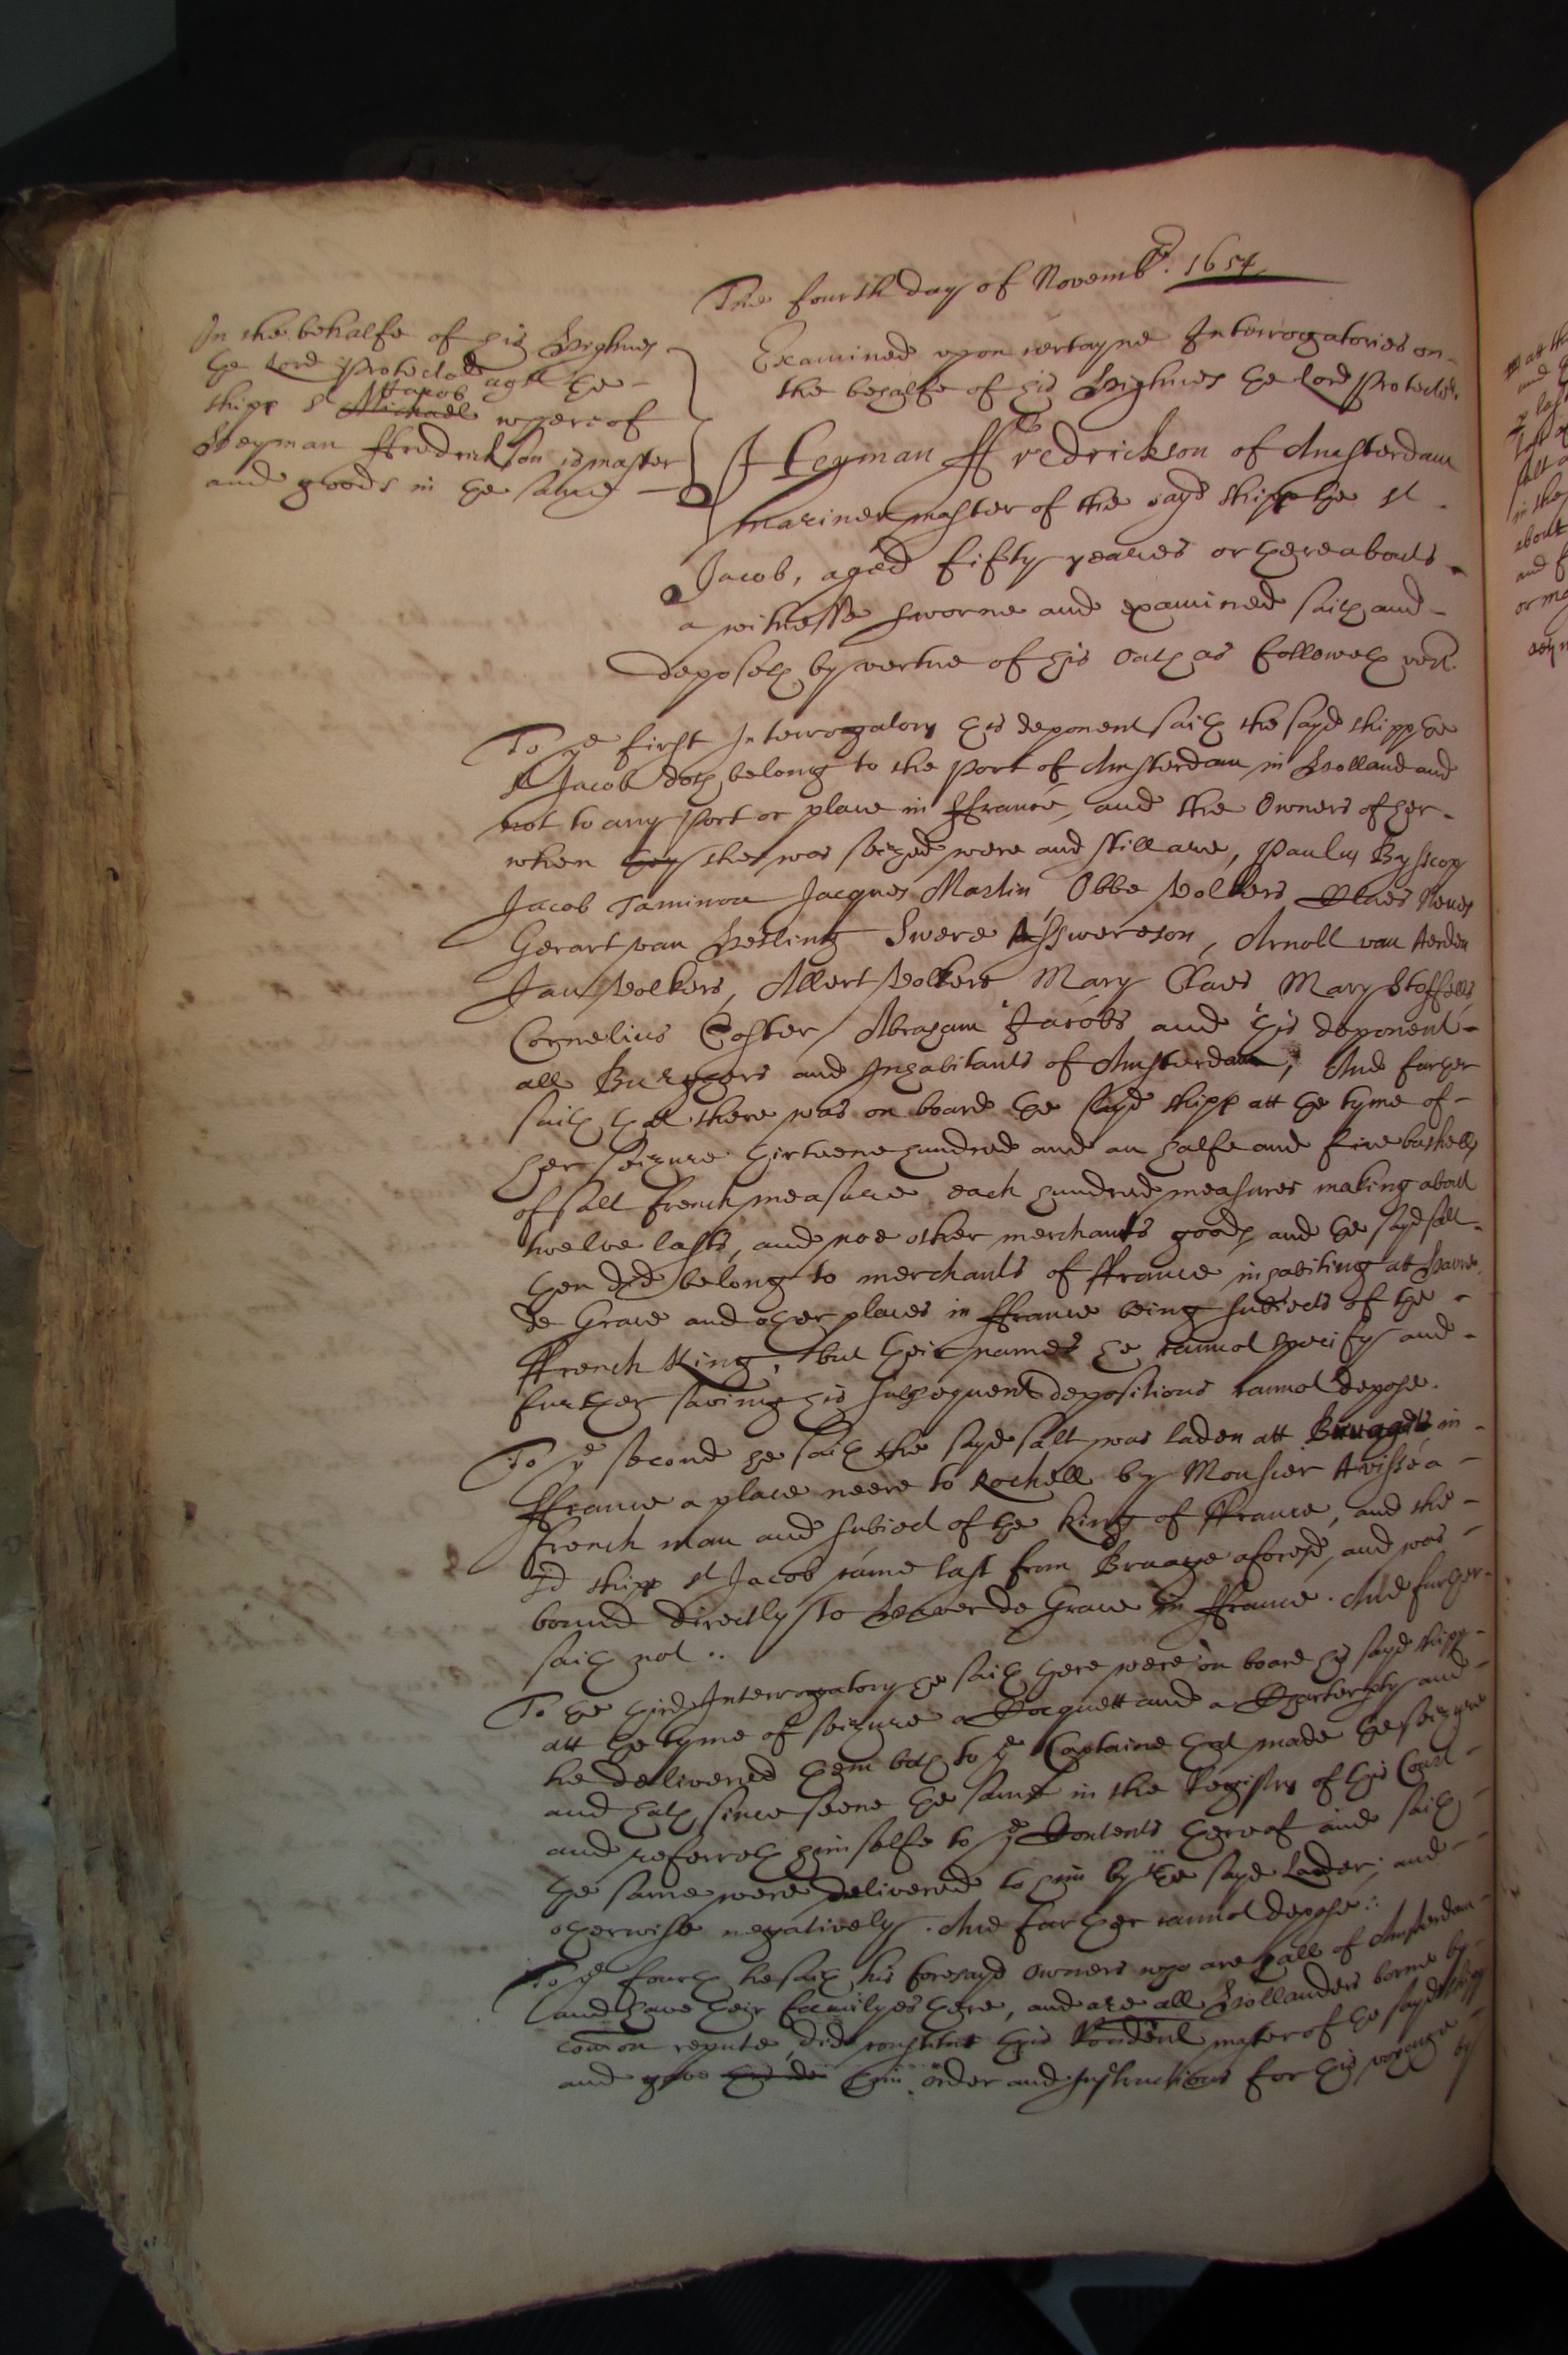 The fourth day of Novemb:r 1654
In the behalfe of his Highnes
the Lord Protector agst the
Jacob
shipp St Michael whereof
Heyman ffredrickson is master
and goods in the same
Examined upon certayne Interrogatories on
the behalfe of his Highnes the Lord Protector.
Heyman ffredrickson of Amsterdam
mariner master of the sayd shipp the St
Jacob, aged fifty yeares or thereabouts
a witnesse sworne and examined saith and
deposeth by vertue of his oath as followeth vizt.
To ye first Interrogatory this deponent saith the sayd shipp the
St Jacob doth belong to the Port of Amsterdam in Holland and
not to any Port or place in ffrance, and the Owners of her
when they she was seized were and still are, Paulus Bysscop
Jacob Taminon Jacques Martin Obbe Volkers Claes
Gerart van Hetling Swere Assswereson, Arnoll van Aenden
Jan Volkers, Allert Volkers Mary Claes Mary Stoffells
Cornelius Coster, Abraham Jacobs and this deponent
all Burghers and Inhabitants of Amsterdam; And further
saith that there was on board the sayd shipp att the tyme of
her seizure thirteene hundred and an halfe and five baskells
of salt french measure each hundred measures making about
twelve lasts, and noe other merchants goods and the sayd salt
then did belong to merchants of ffrance inhabiting at Havre
de Grace and other places in ffrance being subiects of the
ffrench King, but their names he cannot specify and
further saving his subsequent depositions cannot depose.
To ye second he saith the sayd salt was laden att Bruage in
ffrance a place neere to Rochell by Monsier Avisse a
french man and subiect of the King of ffrance, and the
sd shipp St Jacob came last from Bruage aforesd, and was
bound directly to Haver de Grace in ffrance. And further
saith not ..
To the third Interrogatory he saith there were on board the sayd shipp
att the tyme of seizure a Cocquett and a Charterpty and
he delivered them both to ye Captaine that made the seizure
and hath since seene the same in the Registry of this Court
and referreth himselfe to ye Contents thereof and saith
the same were delivered to him by the sayd Lader; and
otherwise negatively. And further cannot depose:.
To ye fourth he saith his foresayd Owners who are all of Amsterdam
and have their familyes there, and are all Hollanders borne by
comon repute, did constitut this Rondent master of the sayd shipp
and gave this de him order and Instructions for this voyage by